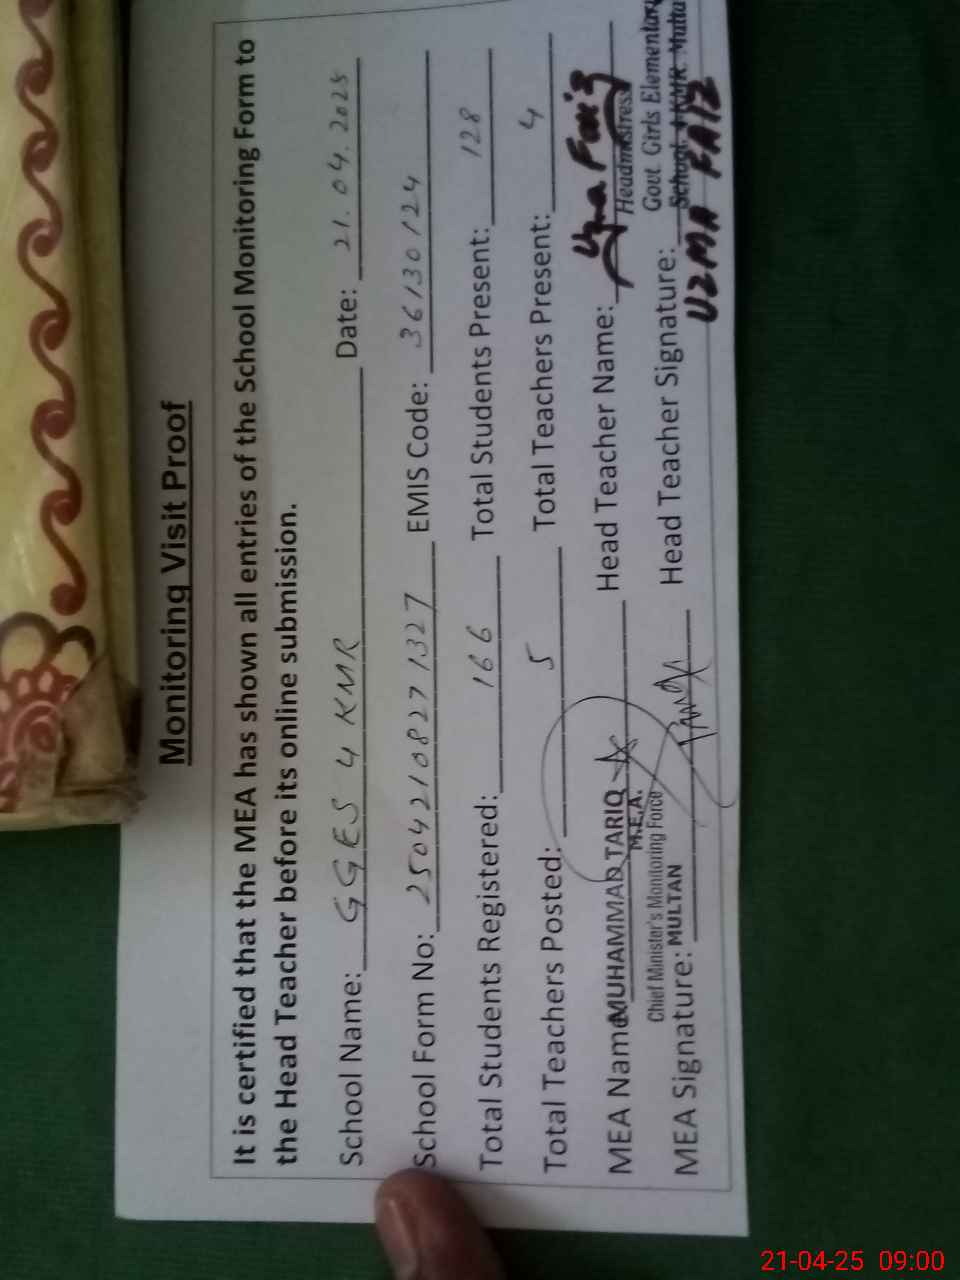 Monitoring Visit Proof
It is certified that the MEA has shown all entries of the School Monitoring Form to
the Head Teacher before its online submission.
School Name: GGES 4 KMR Date: 21.04.2025
School Form No: 2504210827 1327 EMIS Code: 36130124
Total Students Registered: 166 Total Students Present: 128
Total Teachers Posted: 5 Total Teachers Present: 4
MEA Name: MUHAMMAD TARIQ Head Teacher Name: Uzma Faiz
M.E.A. Headmistress
Chief Minister's Monitoring Force Govt. Girls Elementary
MEA Signature: MULTAN Head Teacher Signature: School, 4 KMR. Multa
UZMA FAIZ
21-04-25 09:00